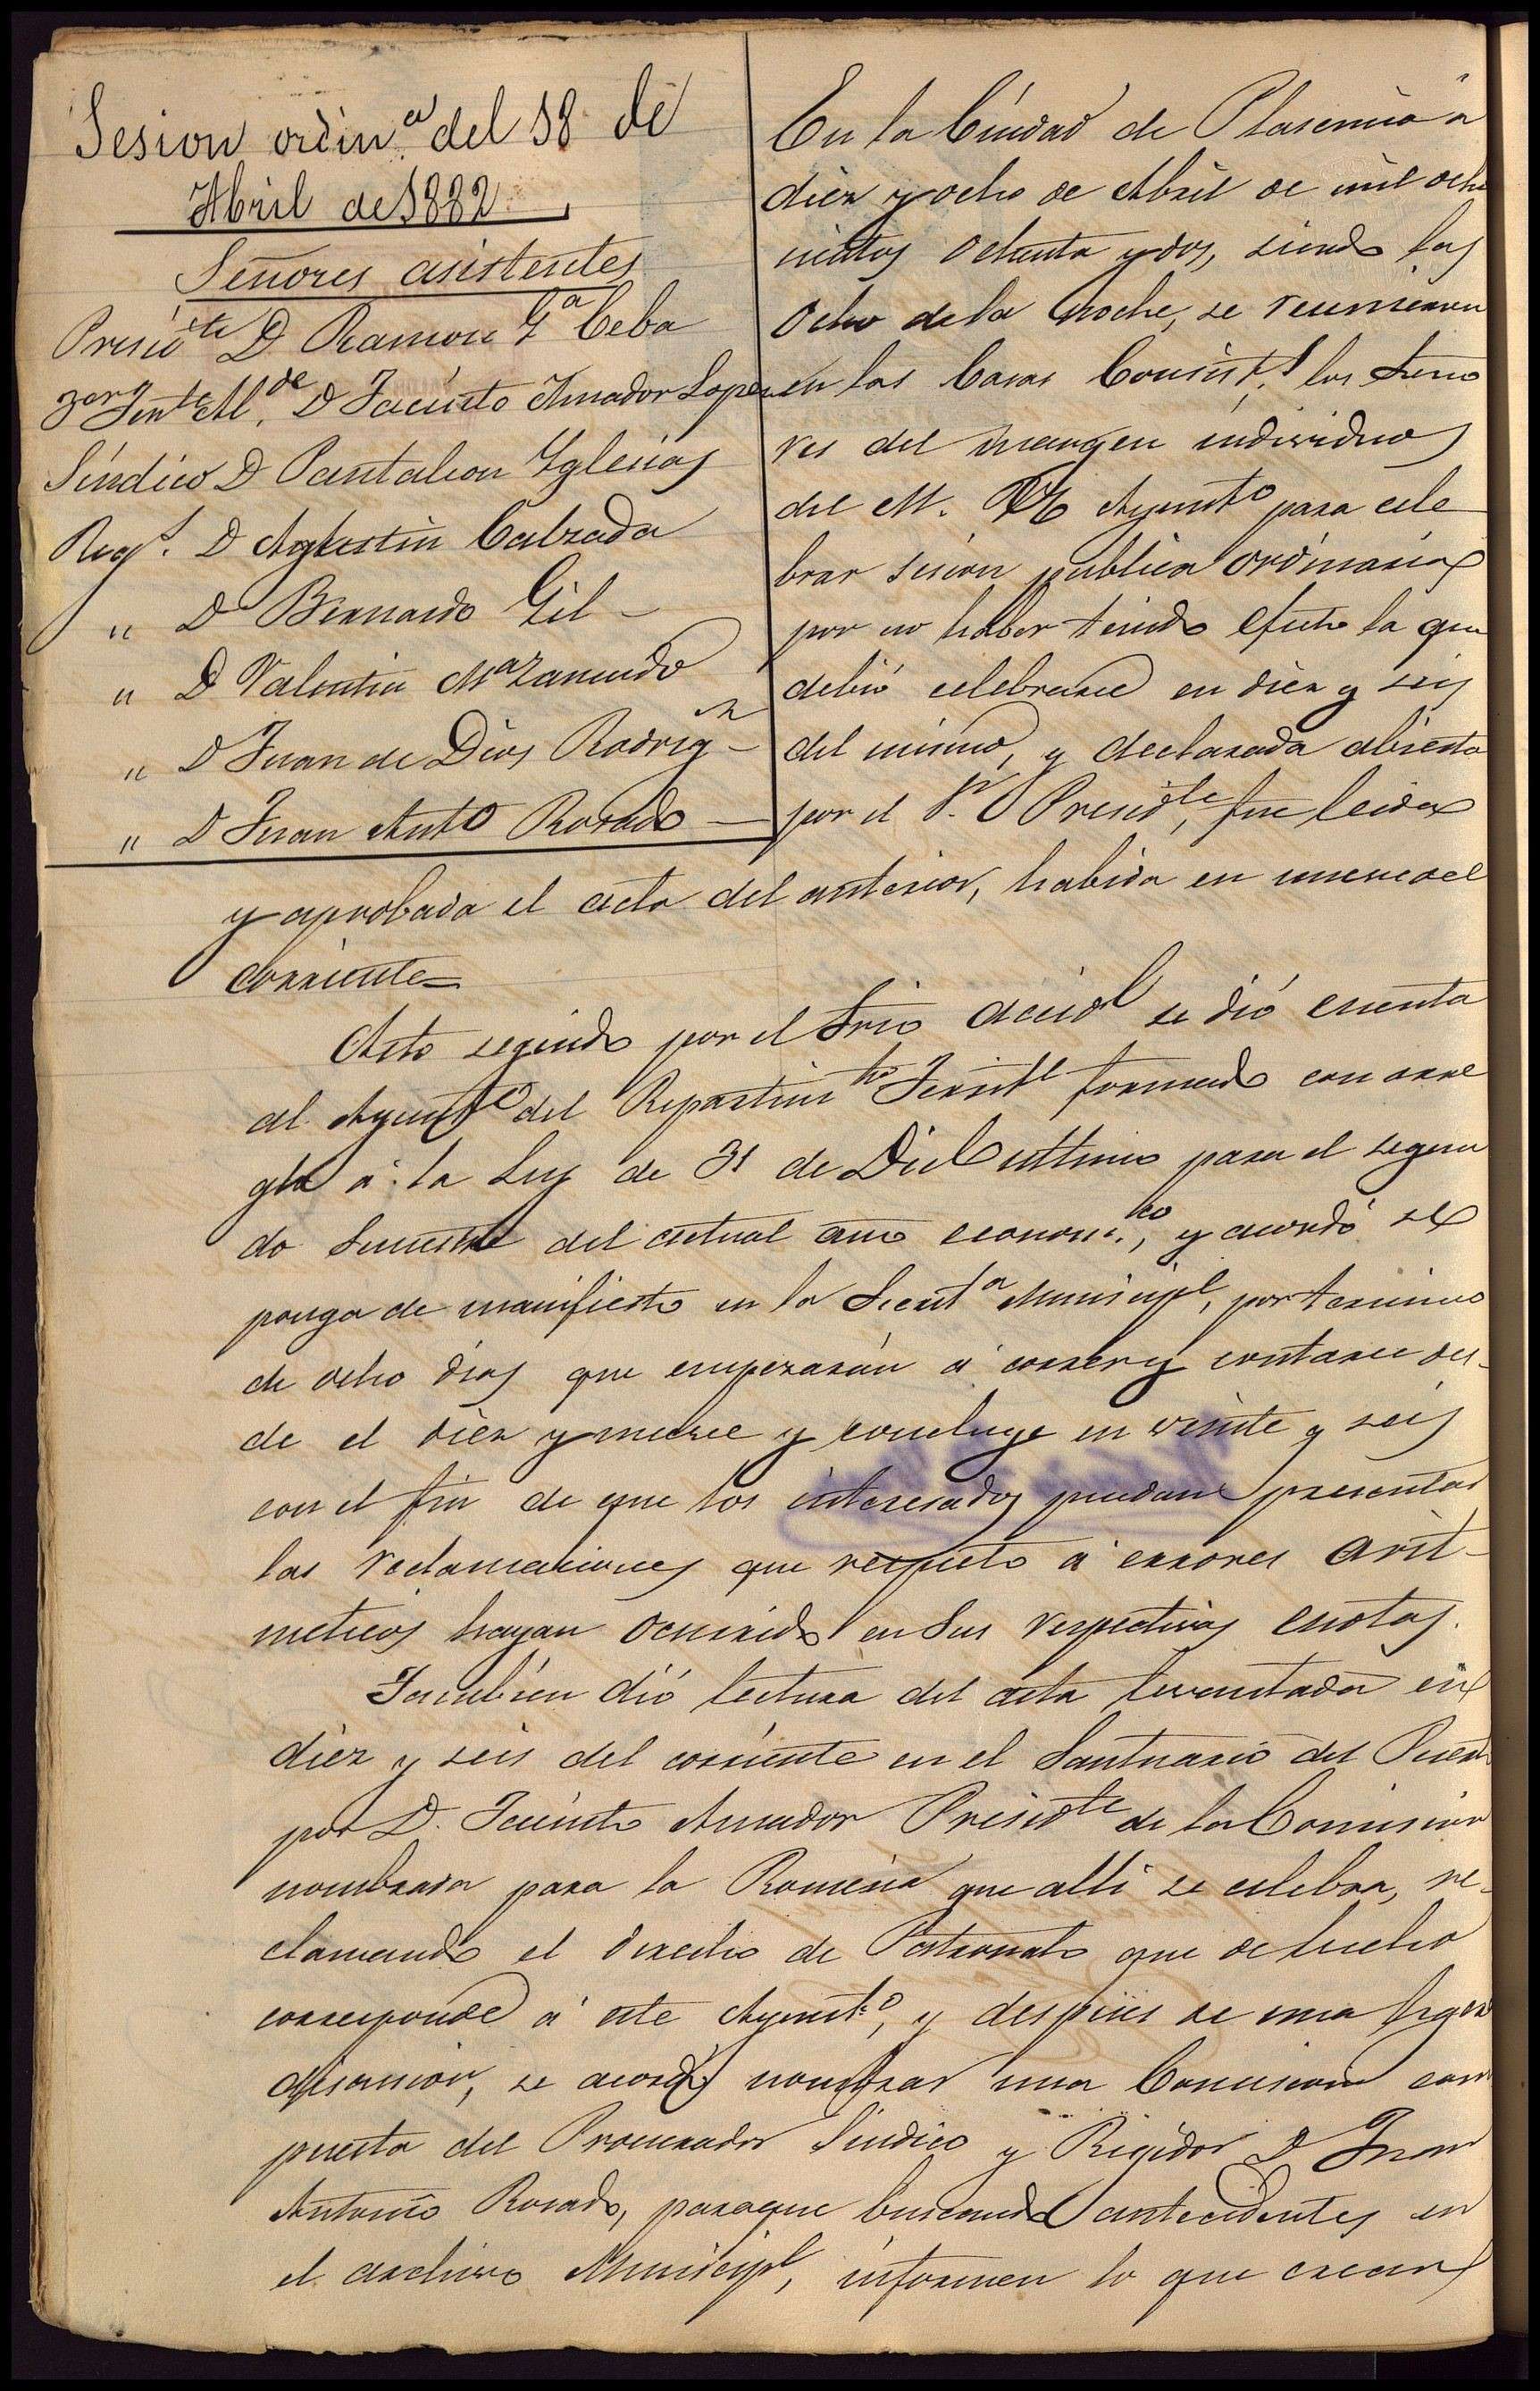 Sesion ordin.ª del 18 de
Abril de 1882
Señores asistentes
Presidte D Ramon Gª Ceba
3er Tente Al.de D Jacinto Amador Lopez
Sindico D Pantaleon Yglesias
Regs. D Agustin Calzada
" D Bernardo Gil
" D Valentin Mª Zamudo
" D Juan de Dios Rodrigz
" D Juan Antº Rosado
En la Ciudad de Plasencia a
diez y ocho de Abril de mil ocho
cientos ochenta y dos, siendo las
ocho de la noche, se reunieron
en las Casas Consists. los Seño
res del margen individuos
del M. Y. Ayuntº para cele
brar sesion publica ordinaria
por no haber tenido efecto la que
debió celebrarse en diez y seis
del mismo, y declarada abierta
por el Sr. Presidte, fue leida
y aprobada el acta del anterior, habida en nueve del
corriente=
Acto seguido por el Srio accidl se dió cuenta
al Ayuntº del Repartimto Territl formado con arre
glo á la Ley de 31 de Dicbe ultimo para el segun
do semestre del actual año economico, y acordó se
ponga de manifiesto en la Secretª Municipl, por termino
de ocho dias que empezarán á correr y contarse des-
de el diez y nueve y concluye en veinte y seis
con el fin de que los interesados puedan presentar
las reclamaciones que respecto á errores arit-
meticos hayan ocurrido en sus respectivas cuotas.
Tambien dió lectura del acta levantada en
diez y seis del corriente en el Santuario del Puerto
por D. Jacinto Amador Presidte de la Comision
nombrada para la Romeria que alli se celebra, re-
clamando el derecho de Patronato que de hecho
corresponde á este Ayuntº, y despues de una ligera
discusion, se acordó nombrar una Comision com
puesta del Procurador Sindico y Regidor D Juan
Antonio Rosado, para que buscando antecedentes en
el archivo Municipl, informen lo que crean